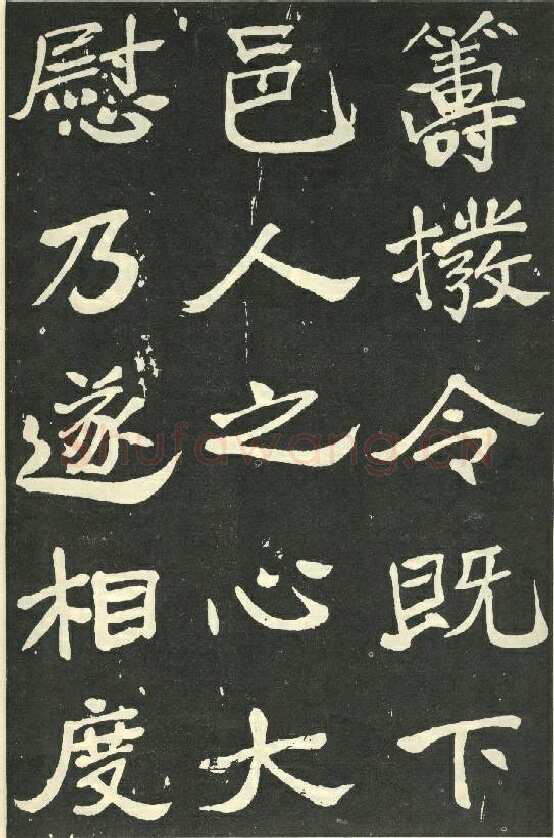 籌撥令既下
邑人之心大
慰乃遂相度
shufawang.cn